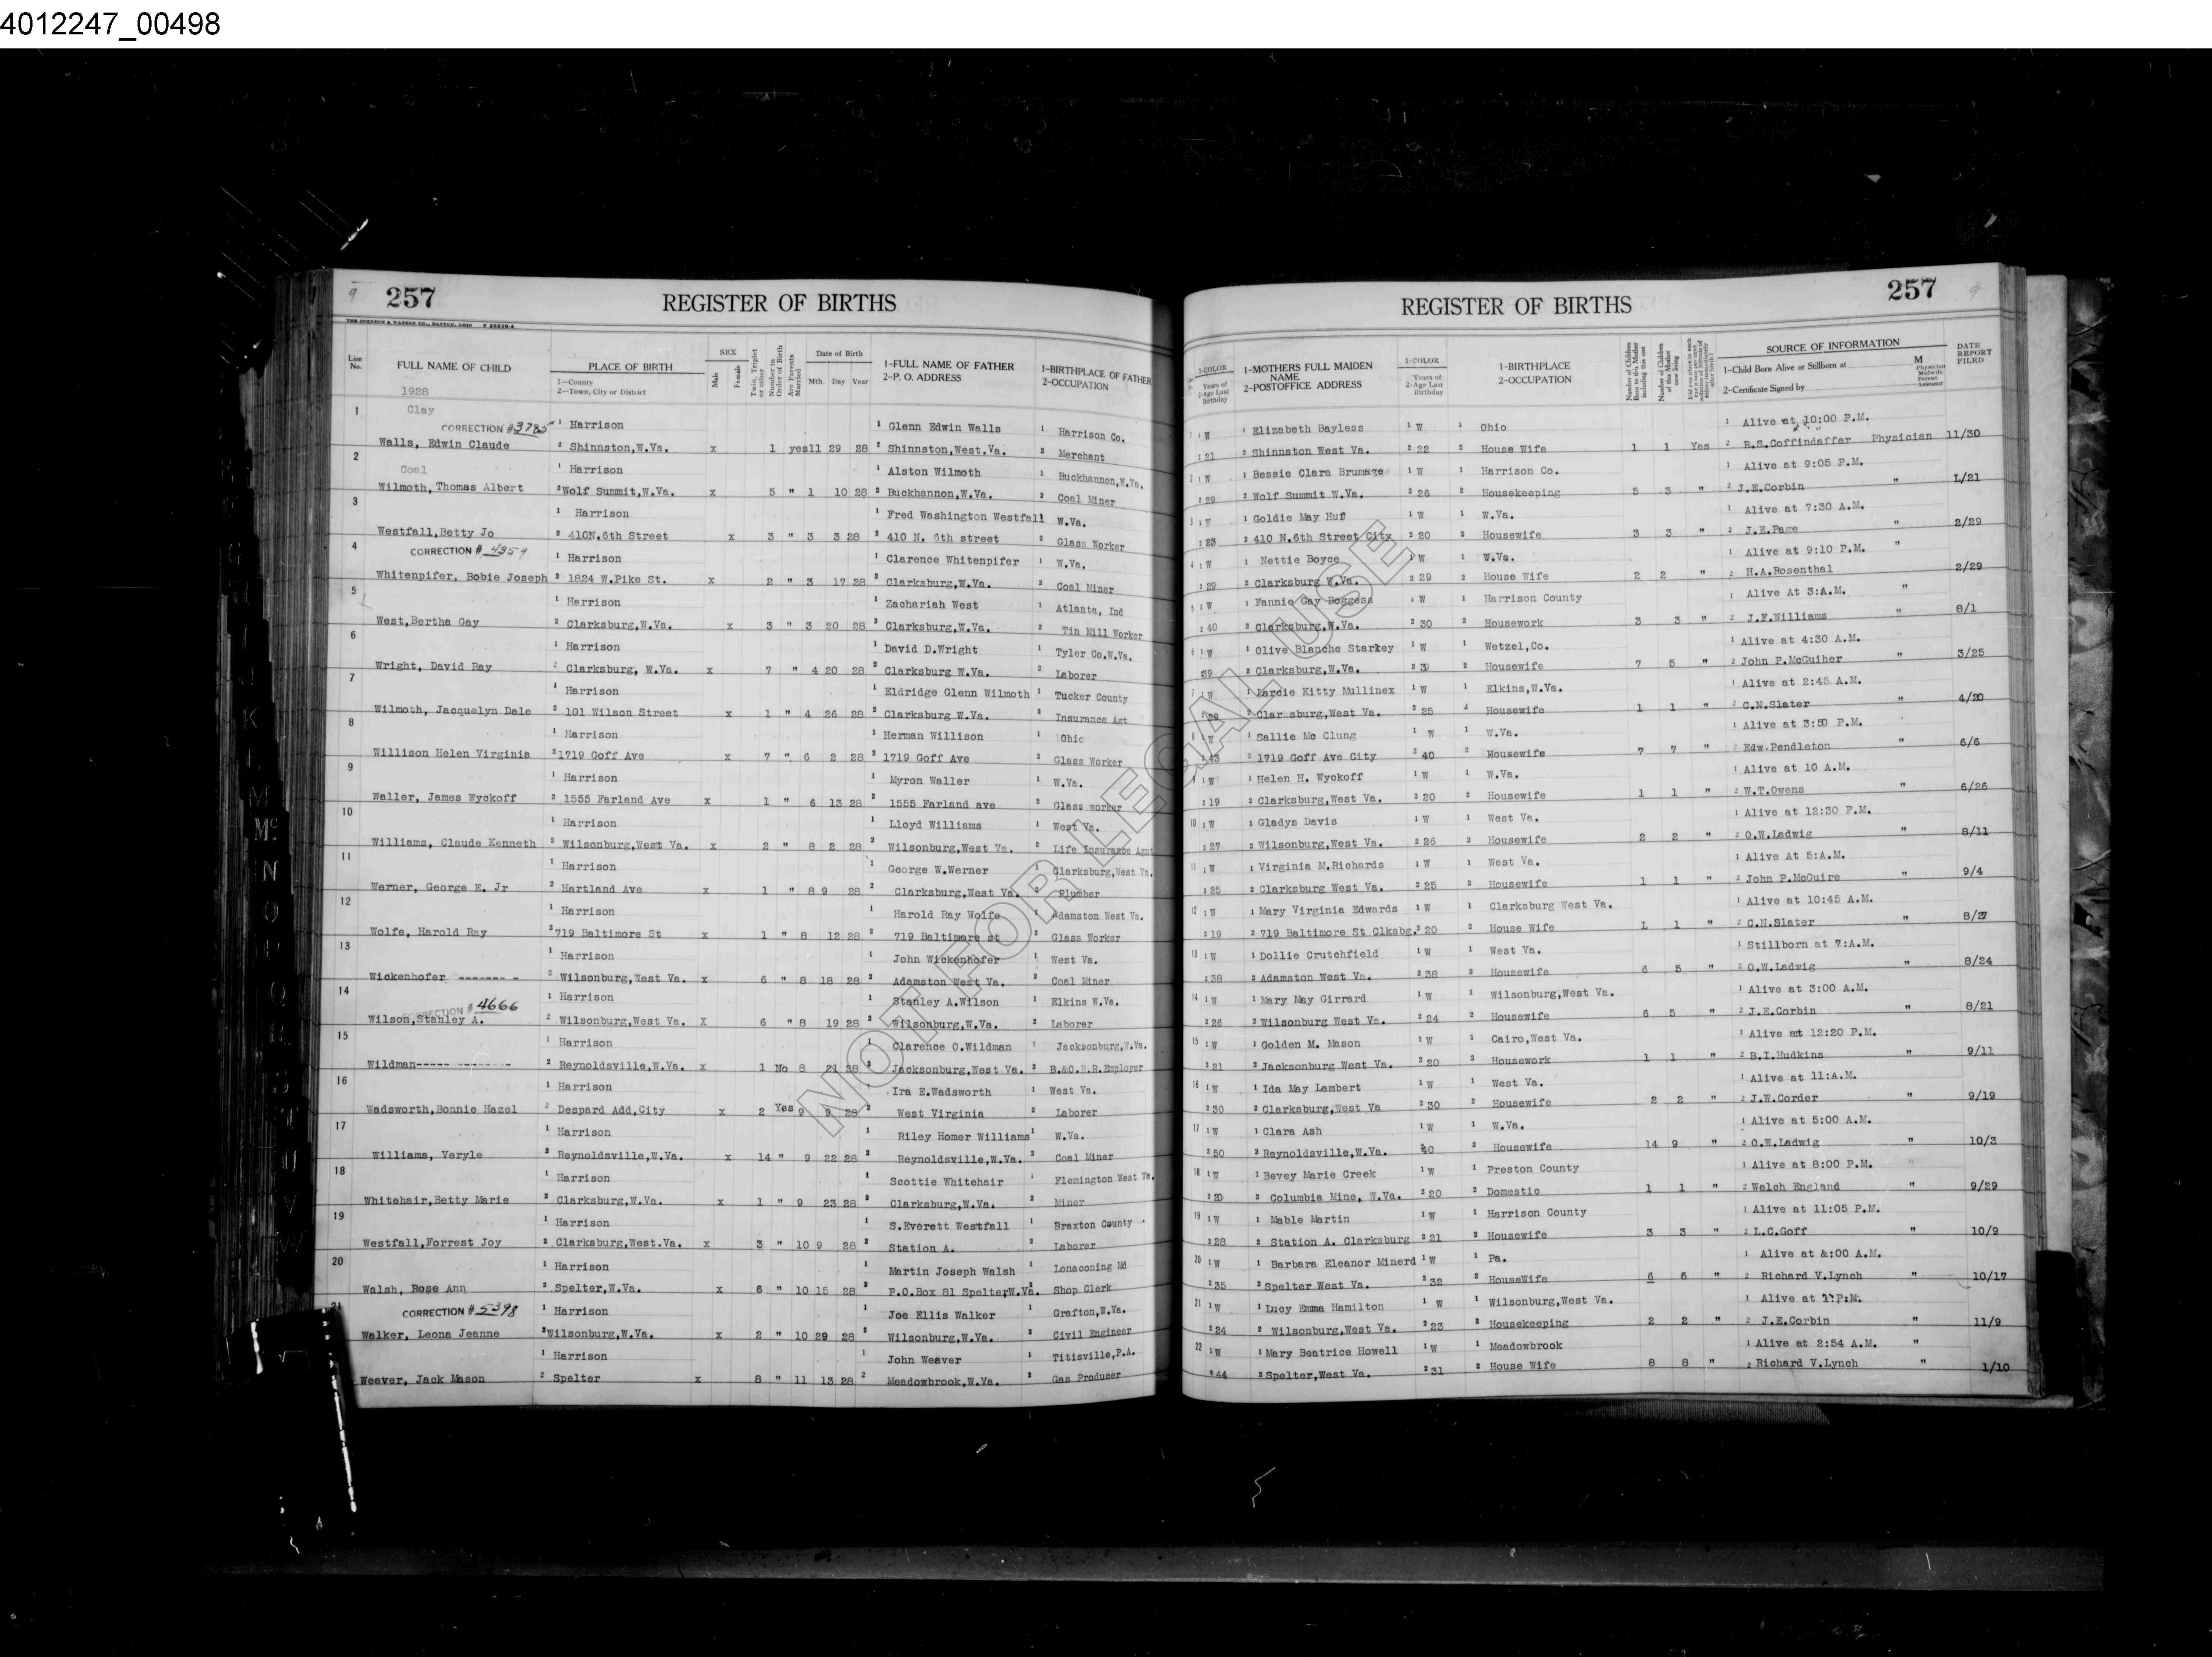 4012247_00498
257 REGISTER OF BIRTHS
REGISTER OF BIRTHS 257
THE JOHNSON & WATSON CO., DAYTON, OHIO
Line No. FULL NAME OF CHILD PLACE OF BIRTH 1—County 2—Town, City or District SEX Male Female Twin, Triplet or other Number in Order of Birth Are Parents Married Date of Birth Mth. Day Year 1-FULL NAME OF FATHER 2-P. O. ADDRESS 1-BIRTHPLACE OF FATHER 2-OCCUPATION
1-COLOR Years of 2-Age Last Birthday 1-MOTHERS FULL MAIDEN NAME 2-POSTOFFICE ADDRESS 1-COLOR Years of 2-Age Last Birthday 1-BIRTHPLACE 2-OCCUPATION Number of Children Born to this Mother including this one Number of Children of this Mother now living SOURCE OF INFORMATION 1-Child Born Alive or Stillborn at M 2-Certificate Signed by Physician Midwife Parent Assessor DATE REPORT FILED
1928
1 Clay
CORRECTION #3785 1 Harrison 1 Glenn Edwin Walls 1 Harrison Co. 1 W 1 Elizabeth Bayless 1 W 1 Ohio 1 Alive at 10:00 P.M.
Walls, Edwin Claude 2 Shinnston,W.Va. x 1 yes 11 29 28 2 Shinnston,West.Va. 2 Merchant 2 21 2 Shinnston West Va. 2 22 2 House Wife 1 1 Yes 2 R.S.Coffindaffer Physician 11/30
2 Coal 1 Harrison 1 Alston Wilmoth 1 Buckhannon,W.Va. 1 W 1 Bessie Clara Brumage 1 W 1 Harrison Co. 1 Alive at 9:05 P.M.
Wilmoth,Thomas Albert 2 Wolf Summit,W.Va. x 5 " 1 10 28 2 Buckhannon,W.Va. 2 Coal Miner 2 29 2 Wolf Summit W.Va. 2 26 2 Housekeeping 5 3 " 2 J.E.Corbin " 1/21
3 1 Harrison 1 Fred Washington Westfall 1 W.Va. 1 W 1 Goldie May Huff 1 W 1 W.Va. 1 Alive at 7:30 A.M.
Westfall,Betty Jo 2 410N.6th Street x 3 " 3 3 28 2 410 N. 6th street 2 Glass Worker 2 23 2 410 N.6th Street City 2 20 2 Housewife 3 3 " 2 J.E.Page " 2/29
4 CORRECTION #4359 1 Harrison 1 Clarence Whitenpifer 1 W.Va. 1 W 1 Nettie Boyce 1 W 1 W.Va. 1 Alive at 9:10 P.M. "
Whitenpifer, Bobie Joseph 2 1824 W.Pike St. x 2 " 3 17 28 2 Clarksburg,W.Va. 2 Coal Miner 2 29 2 Clarksburg W.Va. 2 29 2 House Wife 2 2 " 2 H.A.Rosenthal 2/29
5 1 Harrison 1 Zachariah West 1 Atlanta, Ind 1 W 1 Fannie Gay Boggess 1 W 1 Harrison County 1 Alive At 3:A.M. "
West,Bertha Gay 2 Clarksburg,W.Va. x 3 " 3 20 28 2 Clarksburg,W.Va. 2 Tin Mill Worker 2 40 2 Clarksburg,W.Va. 2 30 2 Housework 3 3 " 2 J.F.Williams " 8/1
6 1 Harrison 1 David D.Wright 1 Tyler Co.W.Va. 1 W 1 Olive Blanche Starkey 1 W 1 Wetzel,Co. 1 Alive at 4:30 A.M.
Wright, David Ray 2 Clarksburg, W.Va. x 7 " 4 20 28 2 Clarksburg W.Va. 2 Laborer 2 39 2 Clarksburg,W.Va. 2 39 2 Housewife 7 5 " 2 John P.McGuiher " 3/25
7 1 Harrison 1 Eldridge Glenn Wilmoth 1 Tucker County 1 W 1 Larcie Kitty Mullinex 1 W 1 Elkins,W.Va. 1 Alive at 2:45 A.M.
Wilmoth, Jacquelyn Dale 2 101 Wilson Street x 1 " 4 26 28 2 Clarksburg W.Va. 2 Insurance Agt 2 29 2 Clarksburg,West Va. 2 25 2 Housewife 1 1 " 2 C.N.Slater " 4/20
8 1 Harrison 1 Herman Willison 1 Ohio 1 W 1 Sallie Mc Clung 1 W 1 W.Va. 1 Alive at 3:50 P.M.
Willison Helen Virginia 2 1719 Goff Ave x 7 " 6 2 28 2 1719 Goff Ave 2 Glass Worker 2 43 2 1719 Goff Ave City 2 40 2 Housewife 7 7 " 2 Edw.Pendleton " 6/6
9 1 Harrison 1 Myron Waller 1 W.Va. 1 W 1 Helen H. Wyckoff 1 W 1 W.Va. 1 Alive at 10 A.M.
Waller, James Wyckoff 2 1555 Farland Ave x 1 " 6 13 28 2 1555 Farland ave 2 Glass worker 2 19 2 Clarksburg,West Va. 2 20 2 Housewife 1 1 " 2 W.T.Owens " 6/26
10 1 Harrison 1 Lloyd Williams 1 West Va. 10 1 W 1 Gladys Davis 1 W 1 West Va. 1 Alive at 12:30 P.M.
Williams, Claude Kenneth 2 Wilsonburg,West Va. x 2 " 8 2 28 2 Wilsonburg,West Va. 2 Life Insurance Agnt 2 27 2 Wilsonburg,West Va. 2 26 2 Housewife 2 2 " 2 O.W.Ladwig " 8/11
11 1 Harrison 1 George W.Werner 1 Clarksburg,West Va. 11 1 W 1 Virginia M.Richards 1 W 1 West Va. 1 Alive At 5:A.M.
Werner, George E. Jr 2 Hartland Ave x 1 " 8 9 28 2 Clarksburg,West Va. 2 Plumber 2 25 2 Clarksburg West Va. 2 25 2 Housewife 1 1 " 2 John P.McGuire " 9/4
12 1 Harrison 1 Harold Ray Wolfe 1 Adamston West Va. 12 1 W 1 Mary Virginia Edwards 1 W 1 Clarksburg West Va. 1 Alive at 10:45 A.M.
Wolfe, Harold Ray 2 719 Baltimore St x 1 " 8 12 28 2 719 Baltimore st 2 Glass Worker 2 19 2 719 Baltimore St Clksbg. 2 20 2 House Wife 1 1 " 2 C.N.Slater " 8/27
13 1 Harrison 1 John Wickenhofer 1 West Va. 13 1 W 1 Dollie Crutchfield 1 W 1 West Va. 1 Stillborn at 7:A.M.
Wickenhofer ------- - 2 Wilsonburg,West Va. x 6 " 8 18 28 2 Adamston West Va. 2 Coal Miner 2 38 2 Adamston West Va. 2 38 2 Housewife 6 5 " 2 O.W.Ladwig " 8/24
14 CORRECTION #4666 1 Harrison 1 Stanley A.Wilson 1 Elkins W.Va. 14 1 W 1 Mary May Girrard 1 W 1 Wilsonburg,West Va. 1 Alive at 3:00 A.M.
Wilson,Stanley A. 2 Wilsonburg,West Va. x 6 " 8 19 28 2 Wilsonburg,W.Va. 2 Laborer 2 26 2 Wilsonburg West Va. 2 24 2 Housewife 6 5 " 2 J.E.Corbin " 8/21
15 1 Harrison 1 Clarence O.Wildman 1 Jacksonburg,W.Va. 15 1 W 1 Golden M. Mason 1 W 1 Cairo,West Va. 1 Alive at 12:20 P.M.
Wildman----- -------- 2 Reynoldsville,W.Va. x 1 No 8 21 28 2 Jacksonburg,West Va. 2 B.&O.R.R.Employer 2 21 2 Jacksonburg West Va. 2 20 2 Housework 1 1 " 2 B.I.Hudkins " 9/11
16 1 Harrison 1 Ira E.Wadsworth 1 West Va. 16 1 W 1 Ida May Lambert 1 W 1 West Va. 1 Alive at 11:A.M.
Wadsworth,Bonnie Hazel 2 Despard Add,City x 2 Yes 9 9 28 2 West Virginia 2 Laborer 2 30 2 Clarksburg,West Va 2 30 2 Housewife 2 2 " 2 J.W.Corder " 9/19
17 1 Harrison 1 Riley Homer Williams 1 W.Va. 17 1 W 1 Clara Ash 1 W 1 W.Va. 1 Alive at 5:00 A.M.
Williams, Veryle 2 Reynoldsville,W.Va. x 14 " 9 22 28 2 Reynoldsville,W.Va. 2 Coal Miner 2 50 2 Reynoldsville,W.Va. 40 2 Housewife 14 9 " 2 O.W.Ladwig " 10/3
18 1 Harrison 1 Scottie Whitehair 1 Flemington West Va. 18 1 W 1 Bevey Marie Creek 1 W 1 Preston County 1 Alive at 8:00 P.M. "
Whitehair,Betty Marie 2 Clarksburg,W.Va. x 1 " 9 23 28 2 Clarksburg,W.Va. 2 Miner 2 20 2 Columbia Mine, W.Va. 2 20 2 Domestic 1 1 " 2 Welch England 9/29
19 1 Harrison 1 S.Everett Westfall 1 Braxton County 19 1 W 1 Mable Martin 1 W 1 Harrison County 1 Alive at 11:05 P.M.
Westfall,Forrest Joy 2 Clarksburg,West.Va. x 3 " 10 9 28 2 Station A. 2 Laborer 2 28 2 Station A. Clarksburg 2 21 2 Housewife 3 3 " 2 L.C.Goff " 10/9
20 1 Harrison 1 Martin Joseph Walsh 1 Lonaconing Md 20 1 W 1 Barbara Eleanor Minerd 1 W 1 Pa. 1 Alive at &:00 A.M.
Walsh, Rose Ann 2 Spelter,W.Va. x 6 " 10 15 28 2 P.O.Box 81 Spelter,W.Va. 2 Shop Clerk 2 35 2 Spelter West Va. 2 32 2 HouseWife 6 6 " 2 Richard V.Lynch " 10/17
21 CORRECTION #5398 1 Harrison 1 Joe Ellis Walker 1 Grafton,W.Va. 21 1 W 1 Lucy Emma Hamilton 1 W 1 Wilsonburg,West Va. 1 Alive at P.M.
Walker, Leona Jeanne 2 Wilsonburg,W.Va. x 2 " 10 29 28 2 Wilsonburg,W.Va. 2 Civil Engineer 2 24 2 Wilsonburg,West Va. 2 23 2 Housekeeping 2 2 " 2 J.E.Corbin " 11/9
1 Harrison 1 John Weaver 1 Titisville,P.A. 22 1 W 1 Mary Beatrice Howell 1 W 1 Meadowbrook 1 Alive at 2:54 A.M. "
Weaver, Jack Mason 2 Spelter x 8 " 11 13 28 2 Meadowbrook,W.Va. 2 Gas Producer 2 44 2 Spelter,West Va. 2 31 2 House Wife 8 8 " 2 Richard V.Lynch " 1/10
NOT FOR LEGAL USE